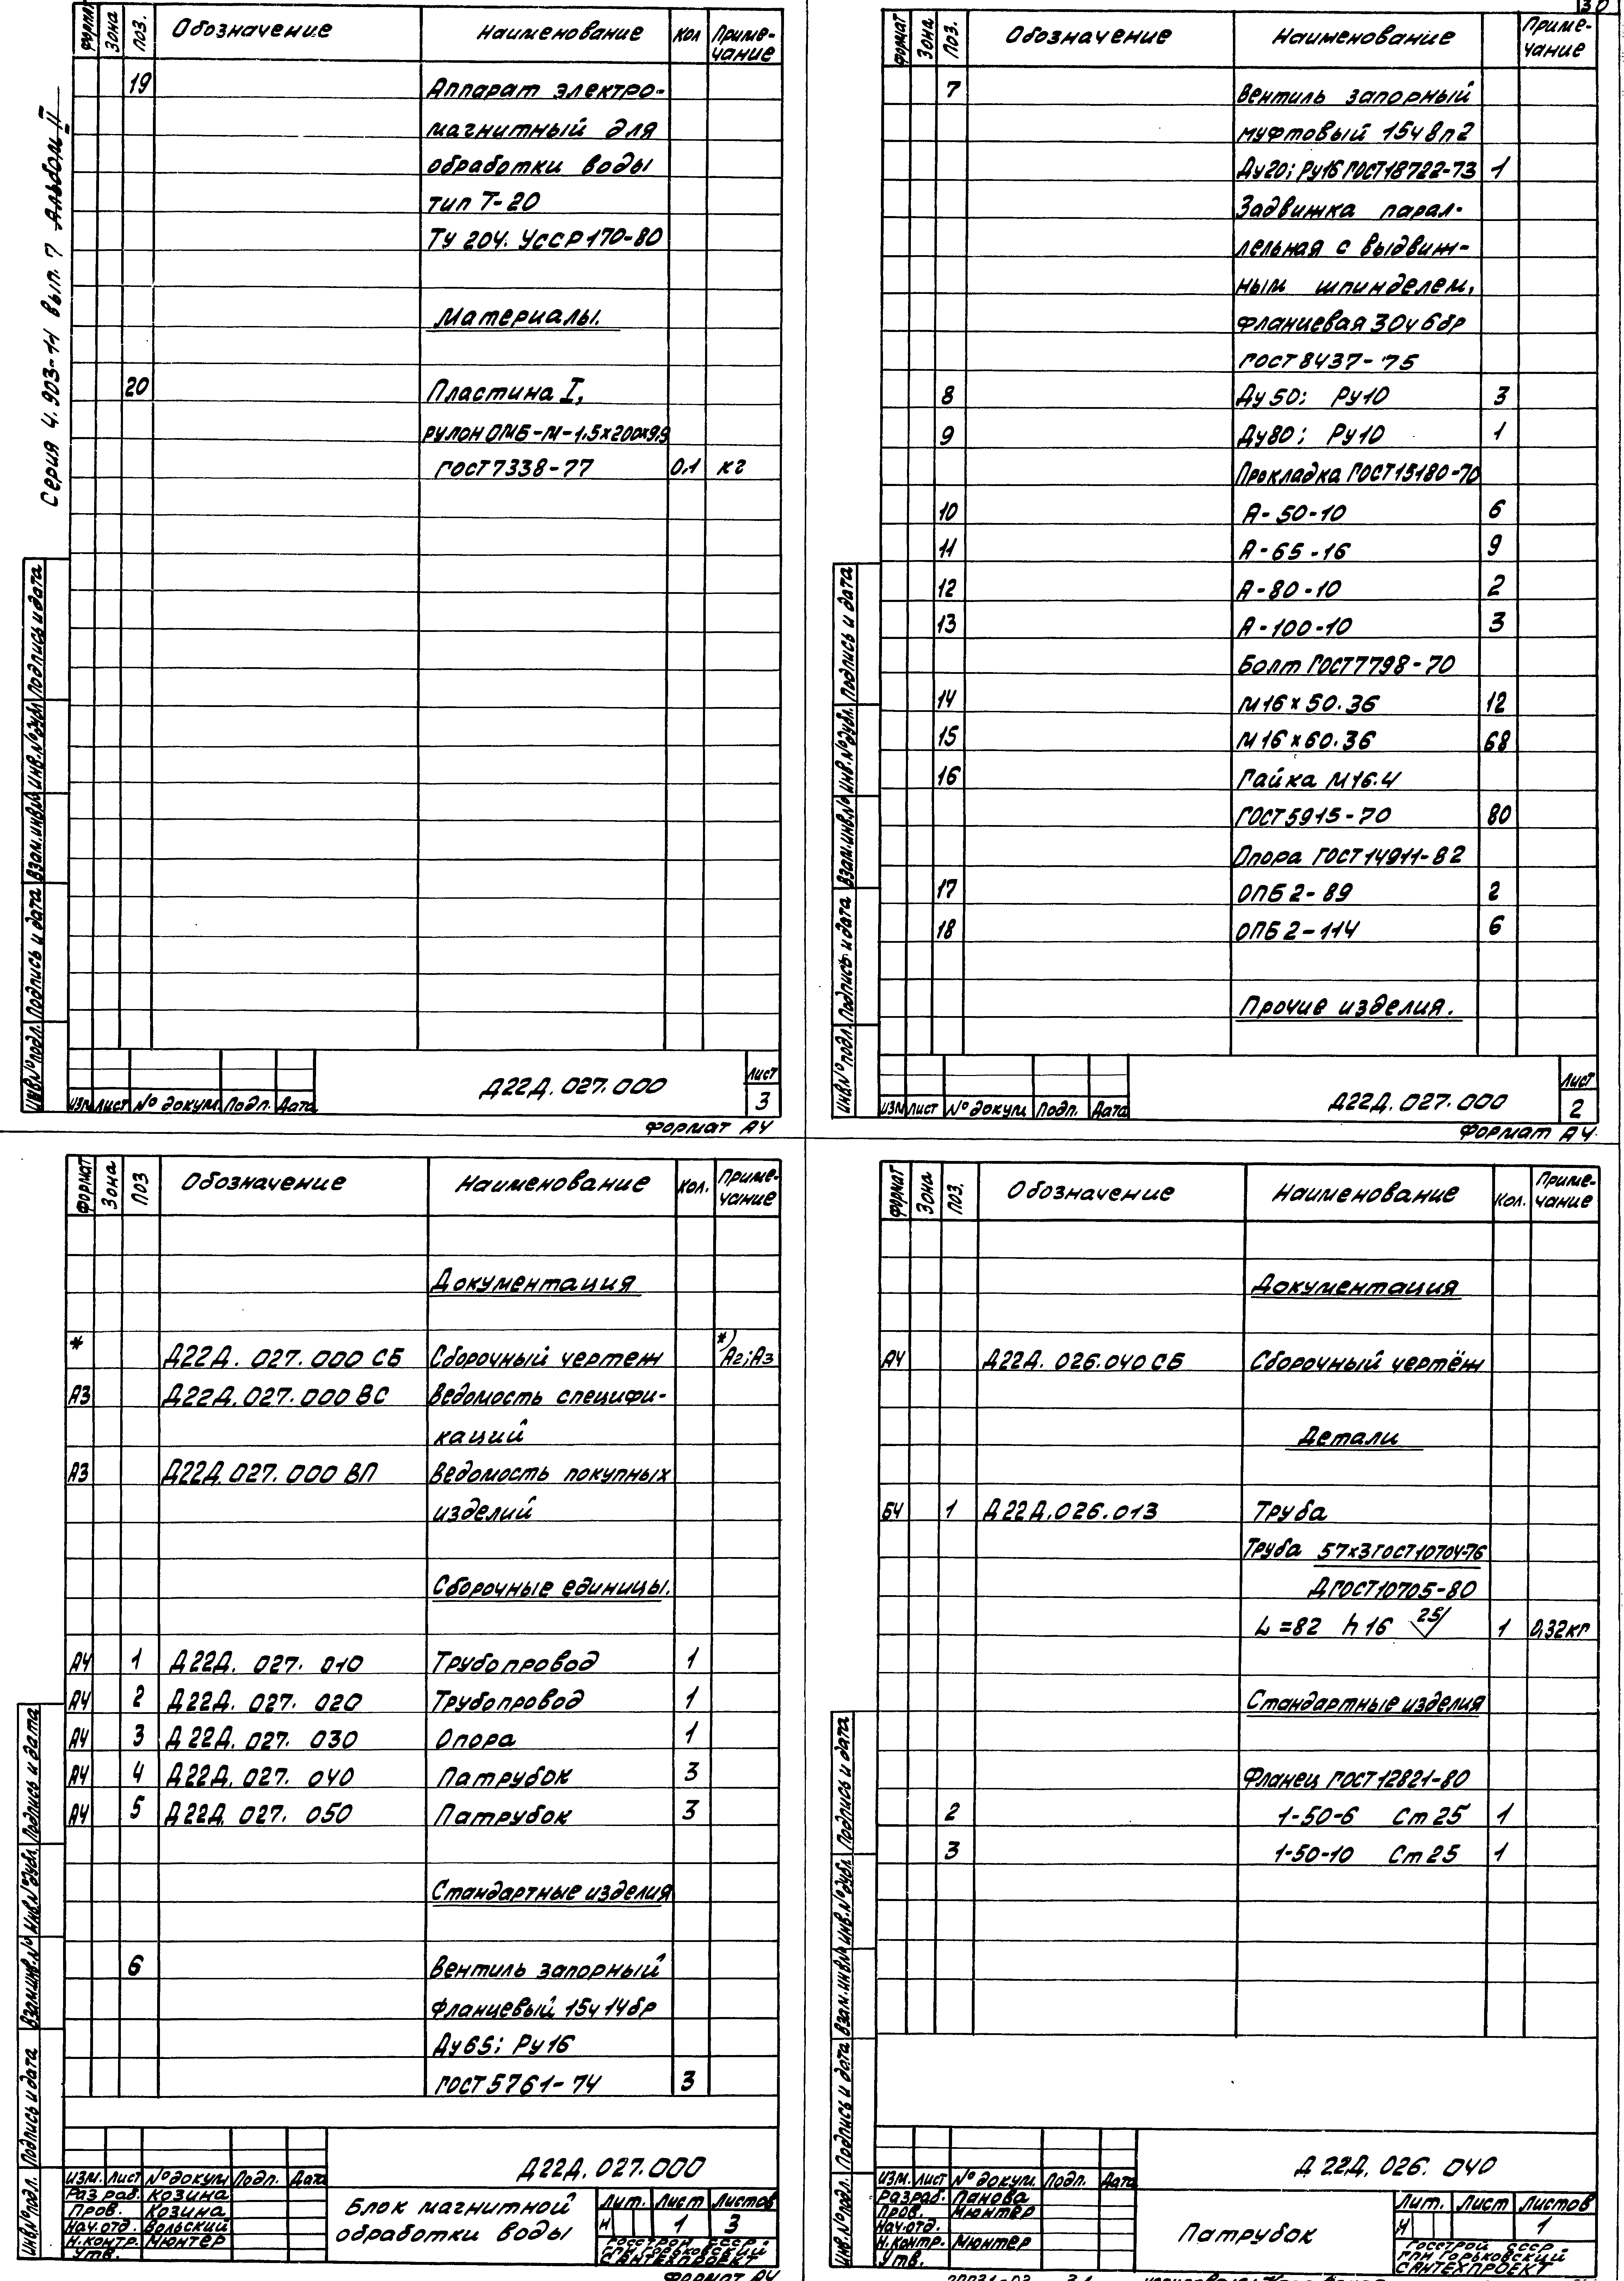 30
Серия 4.903-11 вып. 7 Альбом II
Формат Зона Поз. Обозначение Наименование Кол Приме-
чание
19 Аппарат электро-
магнитный для
обработки воды
тип Т-20
ТУ 204. УССР 170-80
Материалы.
20 Пластина I,
рулон ОМБ-М-1,5х200х9,9
ГОСТ 7338-77 0,1 кг
Инв.№ подл. Подпись и дата Взам.инв.№ Инв.№ дубл. Подпись и дата
Изм Лист № докум. Подп. Дата
Д22Д.027.000
Лист
3
Формат А4
Формат Зона Поз. Обозначение Наименование Приме-
чание
7 Вентиль запорный
муфтовый 15ч8п2
Ду20; Ру16 ГОСТ18722-73 1
Задвижка парал-
лельная с выдвиж-
ным шпинделем,
фланцевая 30ч6бр
ГОСТ 8437-75
8 Ду 50; Ру10 3
9 Ду80; Ру10 1
Прокладка ГОСТ15180-70
10 А-50-10 6
11 А-65-16 9
12 А-80-10 2
13 А-100-10 3
Болт ГОСТ7798-70
14 М16х50.36 12
15 М16х60.36 68
16 Гайка М16.4
ГОСТ5915-70 80
Опора ГОСТ14911-82
17 ОПБ2-89 2
18 ОПБ2-114 6
Прочие изделия.
Инв.№ подл. Подпись и дата Взам.инв.№ Инв.№ дубл. Подпись и дата
Изм Лист № докум Подп. Дата
Д22Д.027.000
Лист
2
Формат А4
Формат Зона Поз Обозначение Наименование Кол. Приме-
чание
Документация
* Д22Д.027.000 СБ Сборочный чертеж *) А2;А3
А3 Д22Д.027.000 ВС Ведомость специфи-
каций
А3 Д22Д.027.000 ВП Ведомость покупных
изделий
Сборочные единицы.
А4 1 Д22Д.027.010 Трубопровод 1
А4 2 Д22Д.027.020 Трубопровод 1
А4 3 Д22Д.027.030 Опора 1
А4 4 Д22Д.027.040 Патрубок 3
А4 5 Д22Д.027.050 Патрубок 3
Стандартные изделия
6 Вентиль запорный
фланцевый 15ч14бр
Ду65; Ру16
ГОСТ5761-74 3
Инв.№ подл. Подпись и дата Взам.инв.№ Инв.№ дубл. Подпись и дата
Д22Д.027.000
Изм. Лист № докум Подп. Дата
Разраб. Козина
Пров. Козина
Нач.отд. Вольский
Н.контр. Мюнтер
Утв.
Блок магнитной
обработки воды
Лит. Лист Листов
И 1 3
Госстрой СССР
ГПИ Горьковский
САНТЕХПРОЕКТ
Формат А4
Формат Зона Поз. Обозначение Наименование Кол. Приме-
чание
Документация
А4 Д22Д.026.040 СБ Сборочный чертёж
Детали
БЧ 1 Д22Д.026.013 Труба
Труба 57х3 ГОСТ10704-76
Д ГОСТ10705-80
L=82 h16 25/ 1 0,32кг
Стандартные изделия
Фланец ГОСТ12821-80
2 1-50-6 Ст 25 1
3 1-50-10 Ст 25 1
Инв.№ подл. Подпись и дата Взам.инв.№ Инв.№ дубл. Подпись и дата
Д22Д.026.040
Изм. Лист № докум. Подп. Дата
Разраб. Панова
Пров. Мюнтер
Нач.отд.
Н.контр. Мюнтер
Утв.
Патрубок
Лит. Лист Листов
И 1
Госстрой СССР
ГПИ Горьковский
САНТЕХПРОЕКТ